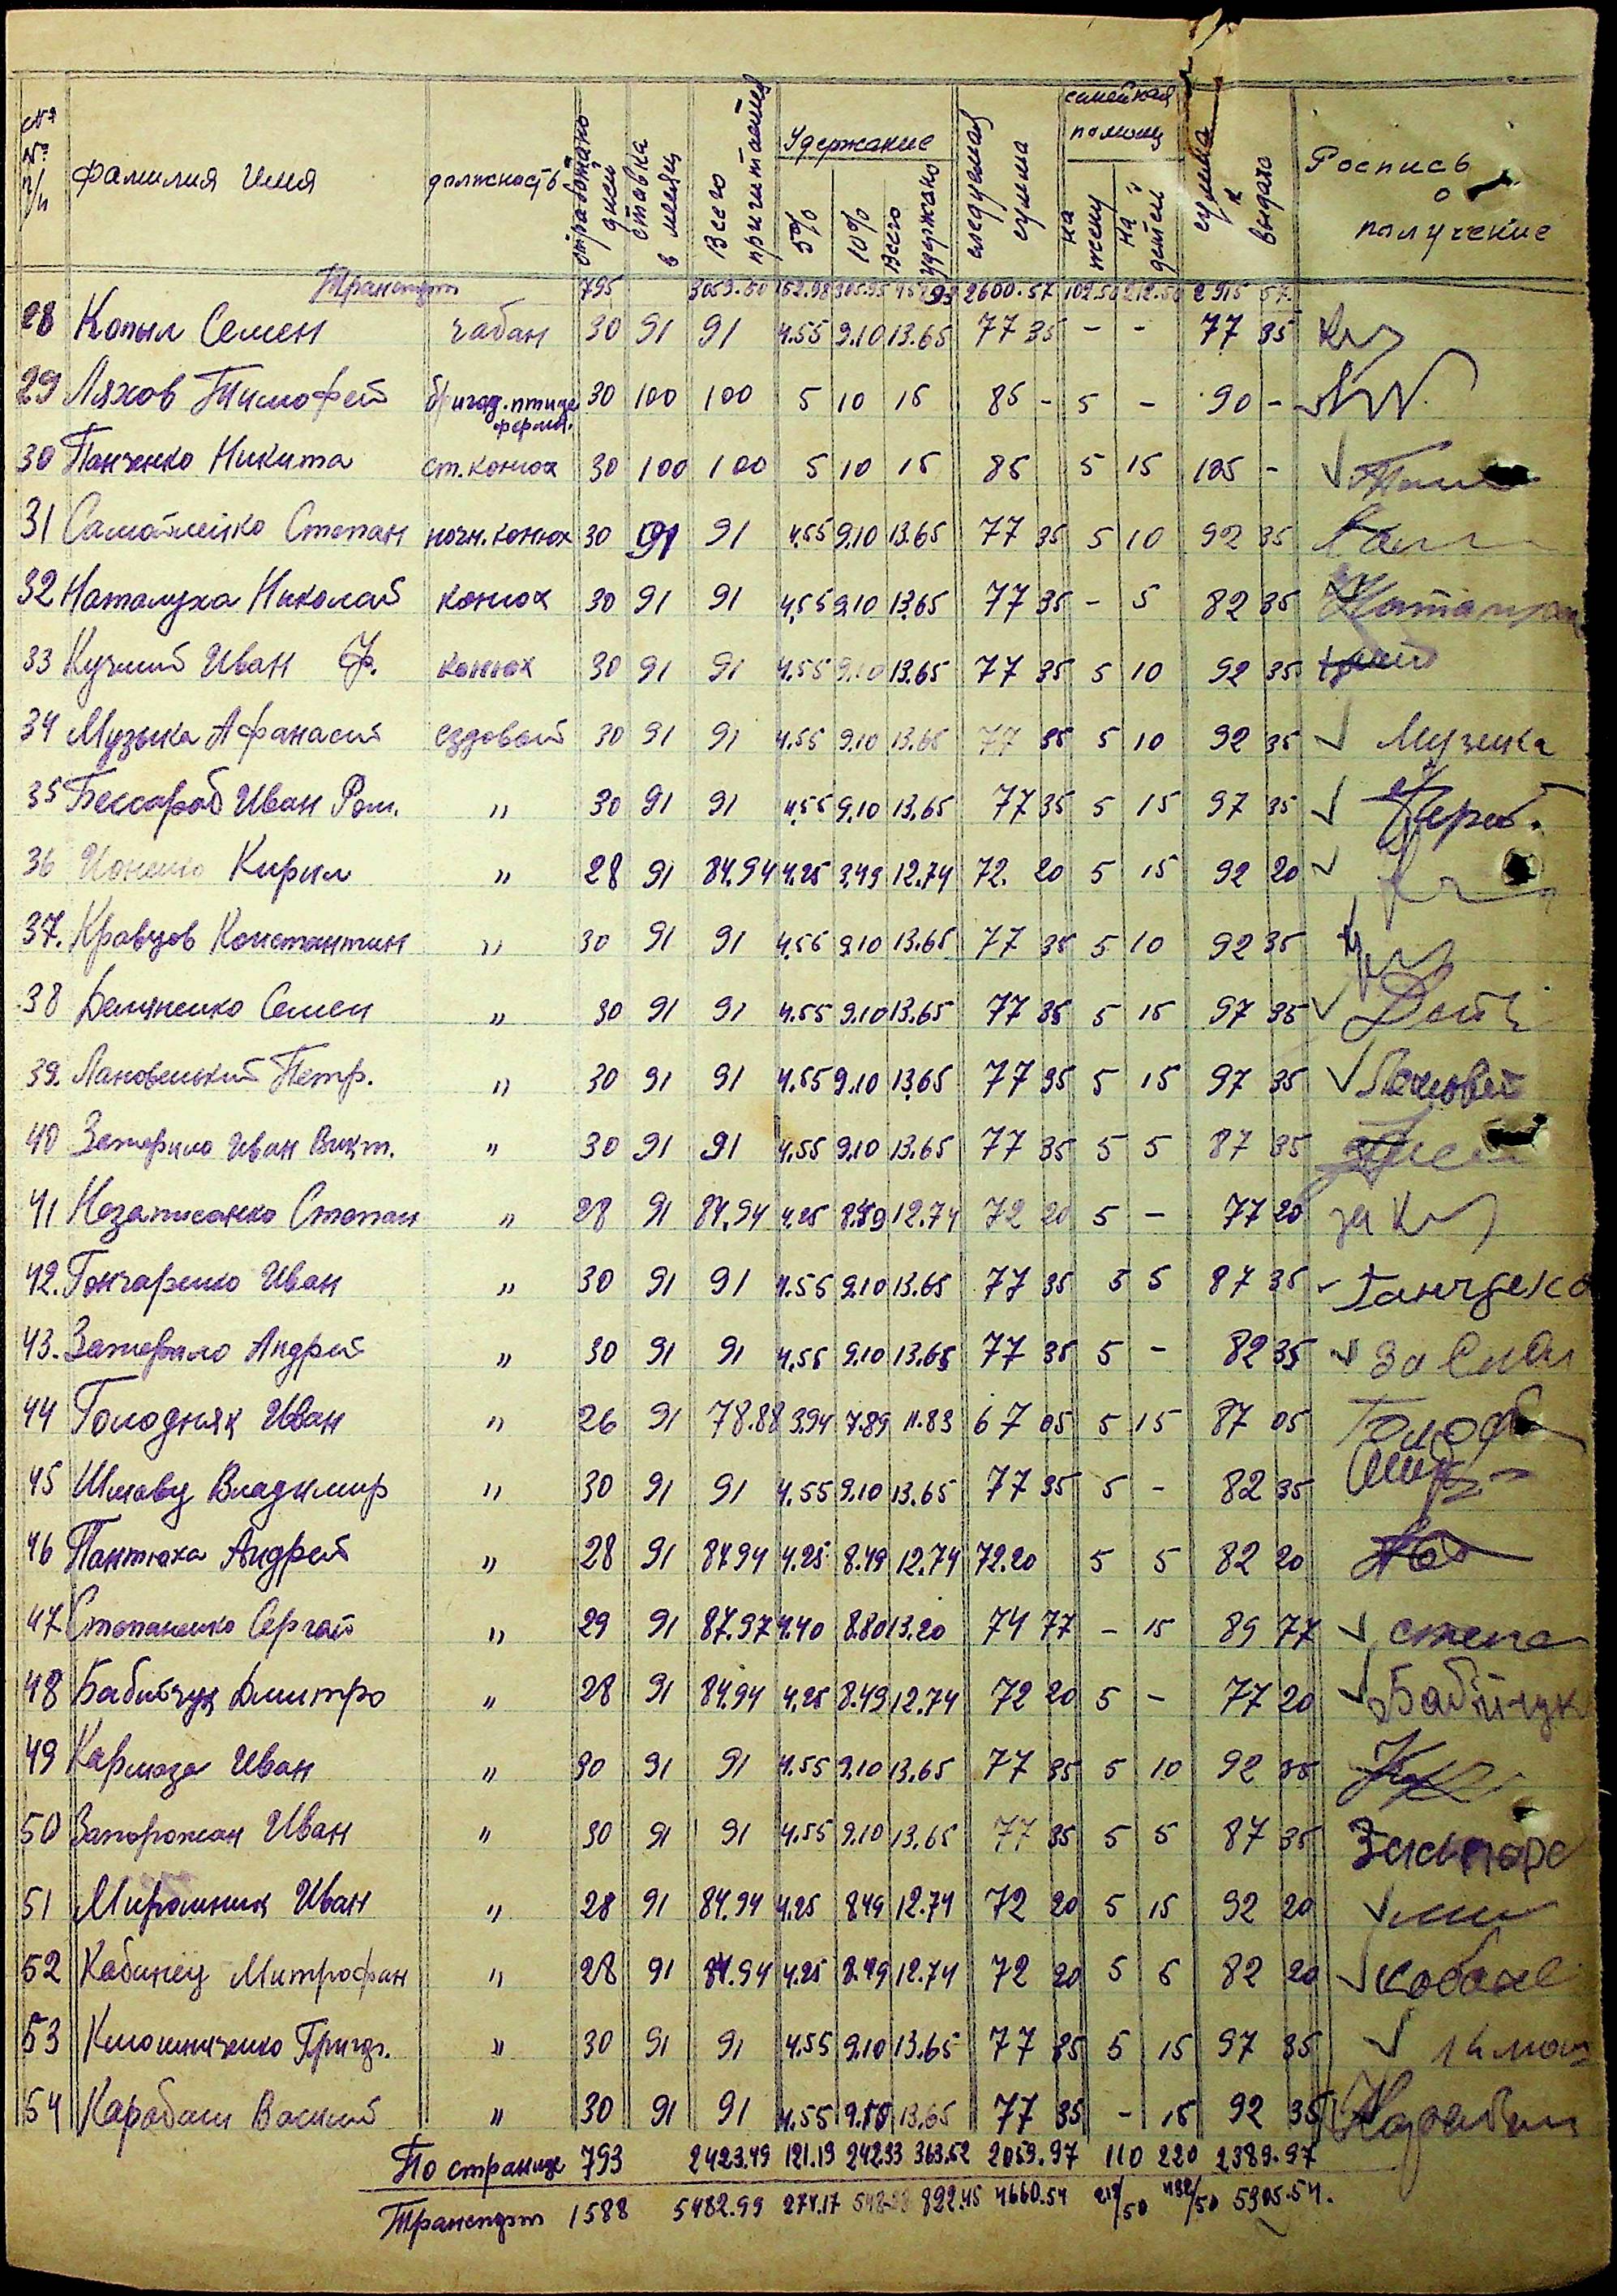 №№ п/п фамилия имя должность отработано дней ставка в месяц Всего причитается Удержание 5% 10% Всего удержано следуемая сумма семейная помощь на жену на детей сумма к выдаче Роспись о получение
Транспорт 795 3059.50 152.98 305.95 2600.57 102.50 212.50 2915 57
28 Копыл Семен чабан 30 91 91 4.55 9.10 13.65 77 35 - - 77 35
29 Ляхов Тимофей бригад. птице ферма. 30 100 100 5 10 15 85 - 5 - 90 -
30 Панченко Никита ст. конюх 30 100 100 5 10 15 85 5 15 105 -
31 Самойленко Степан ночн. конюх 30 91 91 4.55 9.10 13.65 77 35 5 10 92 35
32 Наталуха Николай конюх 30 91 91 4.55 9.10 13.65 77 35 - 5 82 35
33 Кучмий Иван Ф. конюх 30 91 91 4.55 9.10 13.65 77 35 5 10 92 35
34 Музыка Афанасий ездовой 30 91 91 4.55 9.10 13.65 77 35 5 10 92 35 Музыка
35 Бессараб Иван Ром. " 30 91 91 4.55 9.10 13.65 77 35 5 15 97 35
36 Кирил " 28 91 84.94 4.25 8.49 12.74 72. 20 5 15 92 20
37. Кравцов Константин " 30 91 91 4.55 9.10 13.65 77 35 5 10 92 35
38 Демяненко Семен " 30 91 91 4.55 9.10 13.65 77 35 5 15 97 35
39. Лановенький Петр. " 30 91 91 4.55 9.10 13.65 77 35 5 15 97 35
40 Затерило Иван Викт. " 30 91 91 4.55 9.10 13.65 77 35 5 5 87 35
41 Незаписанко Степан " 28 91 84.94 4.25 8.49 12.74 72 20 5 - 77 20
42. Гончаренко Иван " 30 91 91 4.55 9.10 13.65 77 35 5 5 87 35
43. Затерило Андрей " 30 91 91 4.55 9.10 13.65 77 35 5 - 82 35
44 Голодняк Иван " 26 91 78.88 3.94 7.89 11.83 67 05 5 15 87 05
45 Владимир " 30 91 91 4.55 9.10 13.65 77 35 5 - 82 35
46 Пантюха Андрей " 28 91 84.94 4.25 8.49 12.74 72.20 5 5 82 20
47. Степаненко Сергей " 29 91 87.97 4.40 8.80 13.20 74 77 - 15 89 77 степа
48 Бабийчук Дмитро " 28 91 84.94 4.25 8.49 12.74 72 20 5 - 77 20 Бабійчук
49 Кармаза Иван " 30 91 91 4.55 9.10 13.65 77 35 5 10 92 35
50 Запорожан Иван " 30 91 91 4.55 9.10 13.65 77 35 5 5 87 35
51 Мирошник Иван " 28 91 84.94 4.25 8.49 12.74 72 20 5 15 92 20
52 Кабанец Митрофан " 28 91 84.94 4.25 8.49 12.74 72 20 5 5 82 20
53 Клюшниченко Григор. " 30 91 91 4.55 9.10 13.65 77 35 5 15 97 35
54 Карабаш Василий " 30 91 91 4.55 9.10 13.65 77 35 - 15 92 35
По странице 793 2423.49 121.19 242.33 363.52 2059.97 110 220 2389.97
Транспорт 1588 5482.99 274.17 4660.54 5305.54.